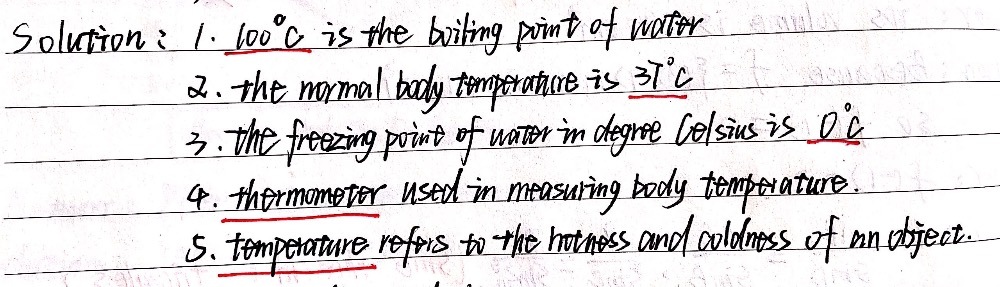 Solution: 1. 100°C is the boiling point of water
2. the normal body temperature is 37°C
3. the freezing point of water in degree Celsius is 0°C
4. thermometer used in measuring body temperature.
5. temperature refers to the hotness and coldness of an object.